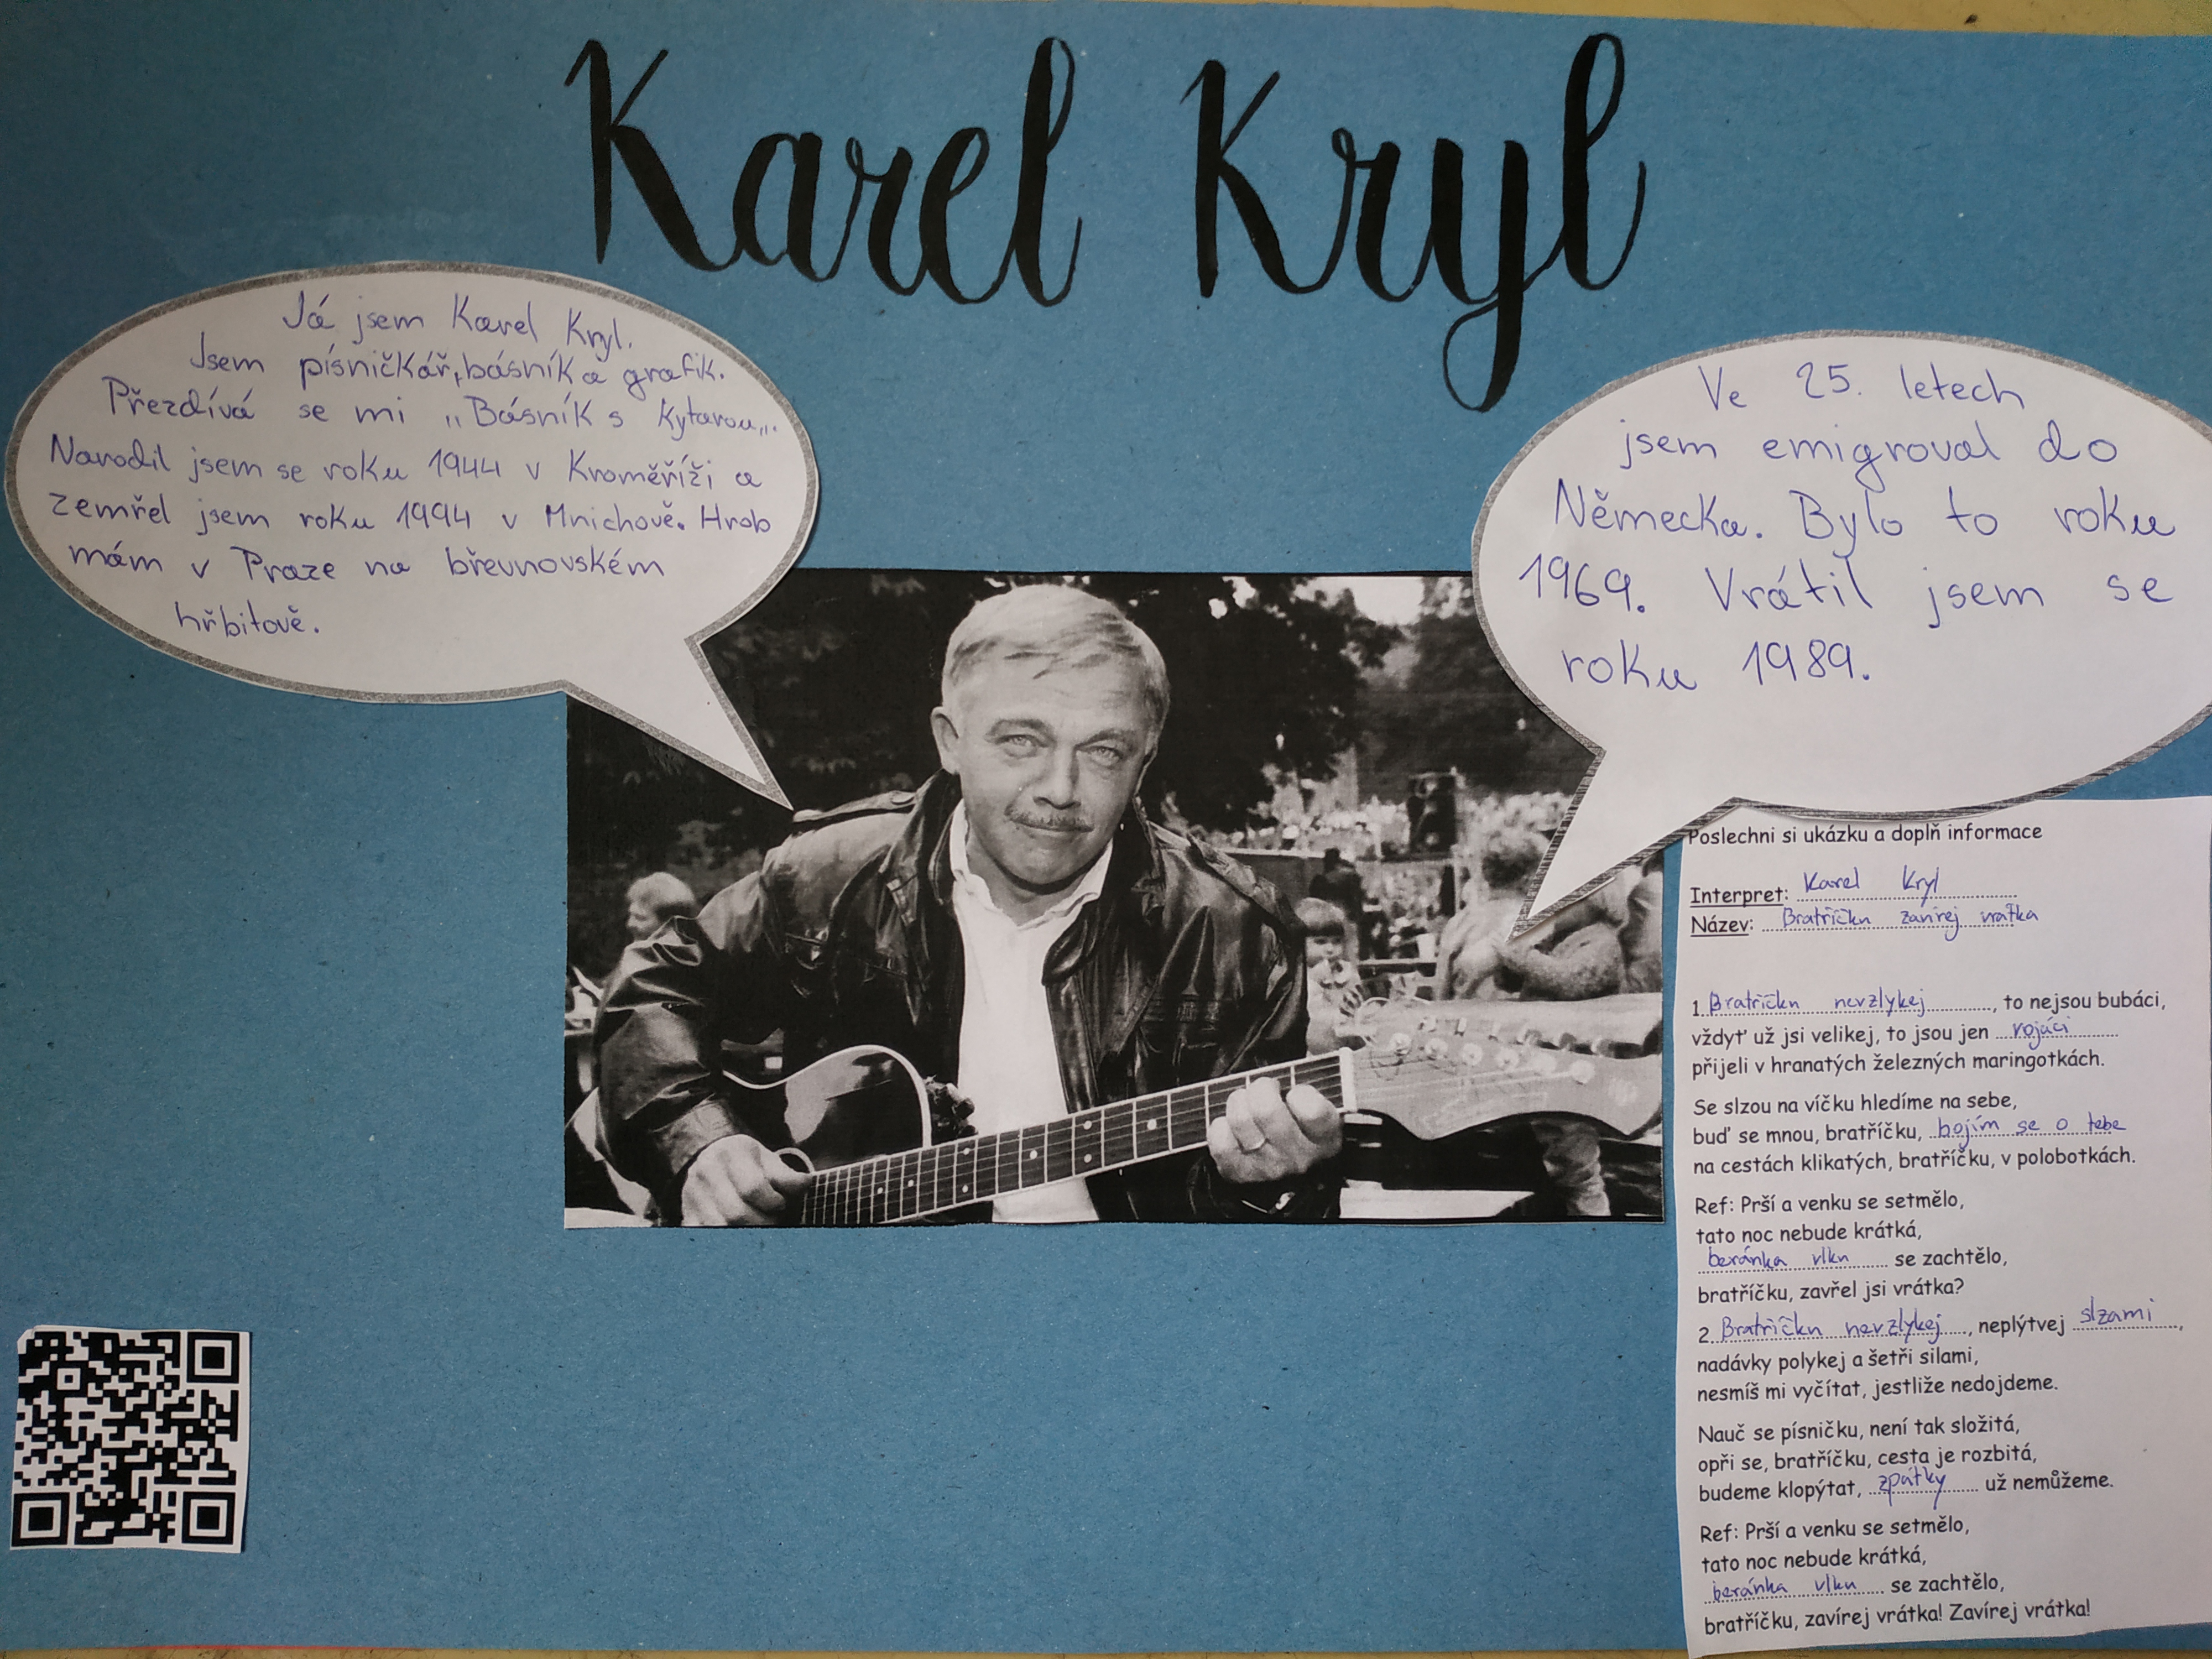 Karel Kryl
Já jsem Karel Kryl.
Jsem písničkář, básník a grafik.
Přezdívá se mi „Básník s kytarou„.
Narodil jsem se roku 1944 v Kroměříži a
zemřel jsem roku 1994 v Mnichově. Hrob
mám v Praze na břevnovském
hřbitově.
Ve 25. letech
jsem emigroval do
Německa. Bylo to roku
1969. Vrátil jsem se
roku 1989.
Poslechni si ukázku a doplň informace
Interpret: Karel Kryl
Název: Bratříčku zavírej vrátka
1. Bratříčku nevzlykej, to nejsou bubáci,
vždyť už jsi velikej, to jsou jen vojáci
přijeli v hranatých železných maringotkách.
Se slzou na víčku hledíme na sebe,
buď se mnou, bratříčku, bojím se o tebe
na cestách klikatých, bratříčku, v polobotkách.
Ref: Prší a venku se setmělo,
tato noc nebude krátká,
beránka vlku se zachtělo,
bratříčku, zavřel jsi vrátka?
2. Bratříčku nevzlykej, neplýtvej slzami,
nadávky polykej a šetři silami,
nesmíš mi vyčítat, jestliže nedojdeme.
Nauč se písničku, není tak složitá,
opři se, bratříčku, cesta je rozbitá,
budeme klopýtat, zpátky už nemůžeme.
Ref: Prší a venku se setmělo,
tato noc nebude krátká,
beránka vlku se zachtělo,
bratříčku, zavírej vrátka! Zavírej vrátka!